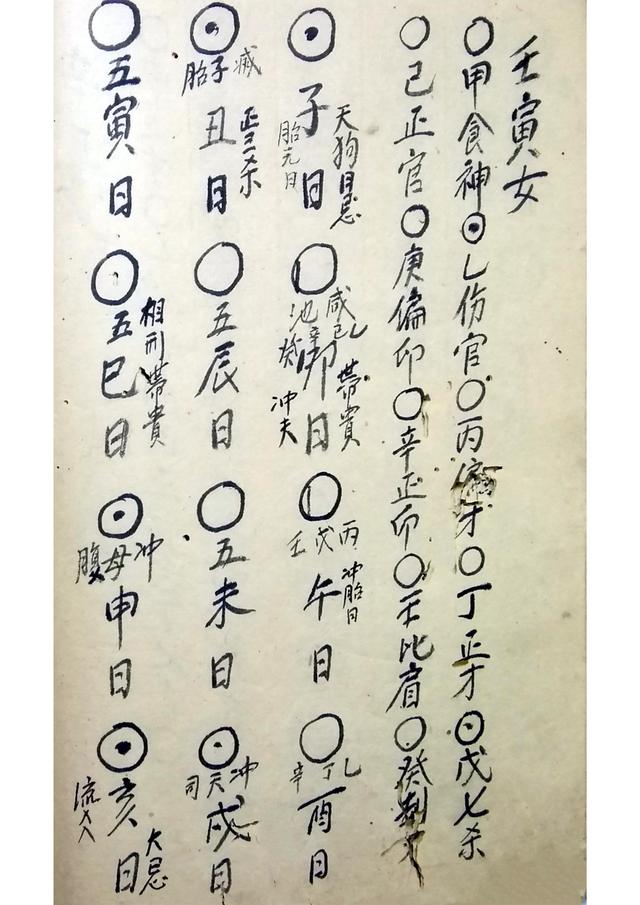 壬寅女
○甲食神⊙乙伤官○丙偏才○丁正才⊙戊七杀
○己正官○庚偏印○辛正印○壬比肩○癸刦才
⊙子日 天狗日忌 胎元日
卯日 咸池 乙己辛癸 帯貴 冲夫
午日 丙戊壬 冲胎日
○酉日 乙丁辛
⊙丑日 滅子胎 正三杀
○五辰日
○五未日
⊙戌日 冲天司
○五寅日
五巳日 相刑帯貴
⊙申日 冲母腹
⊙亥日 大忌